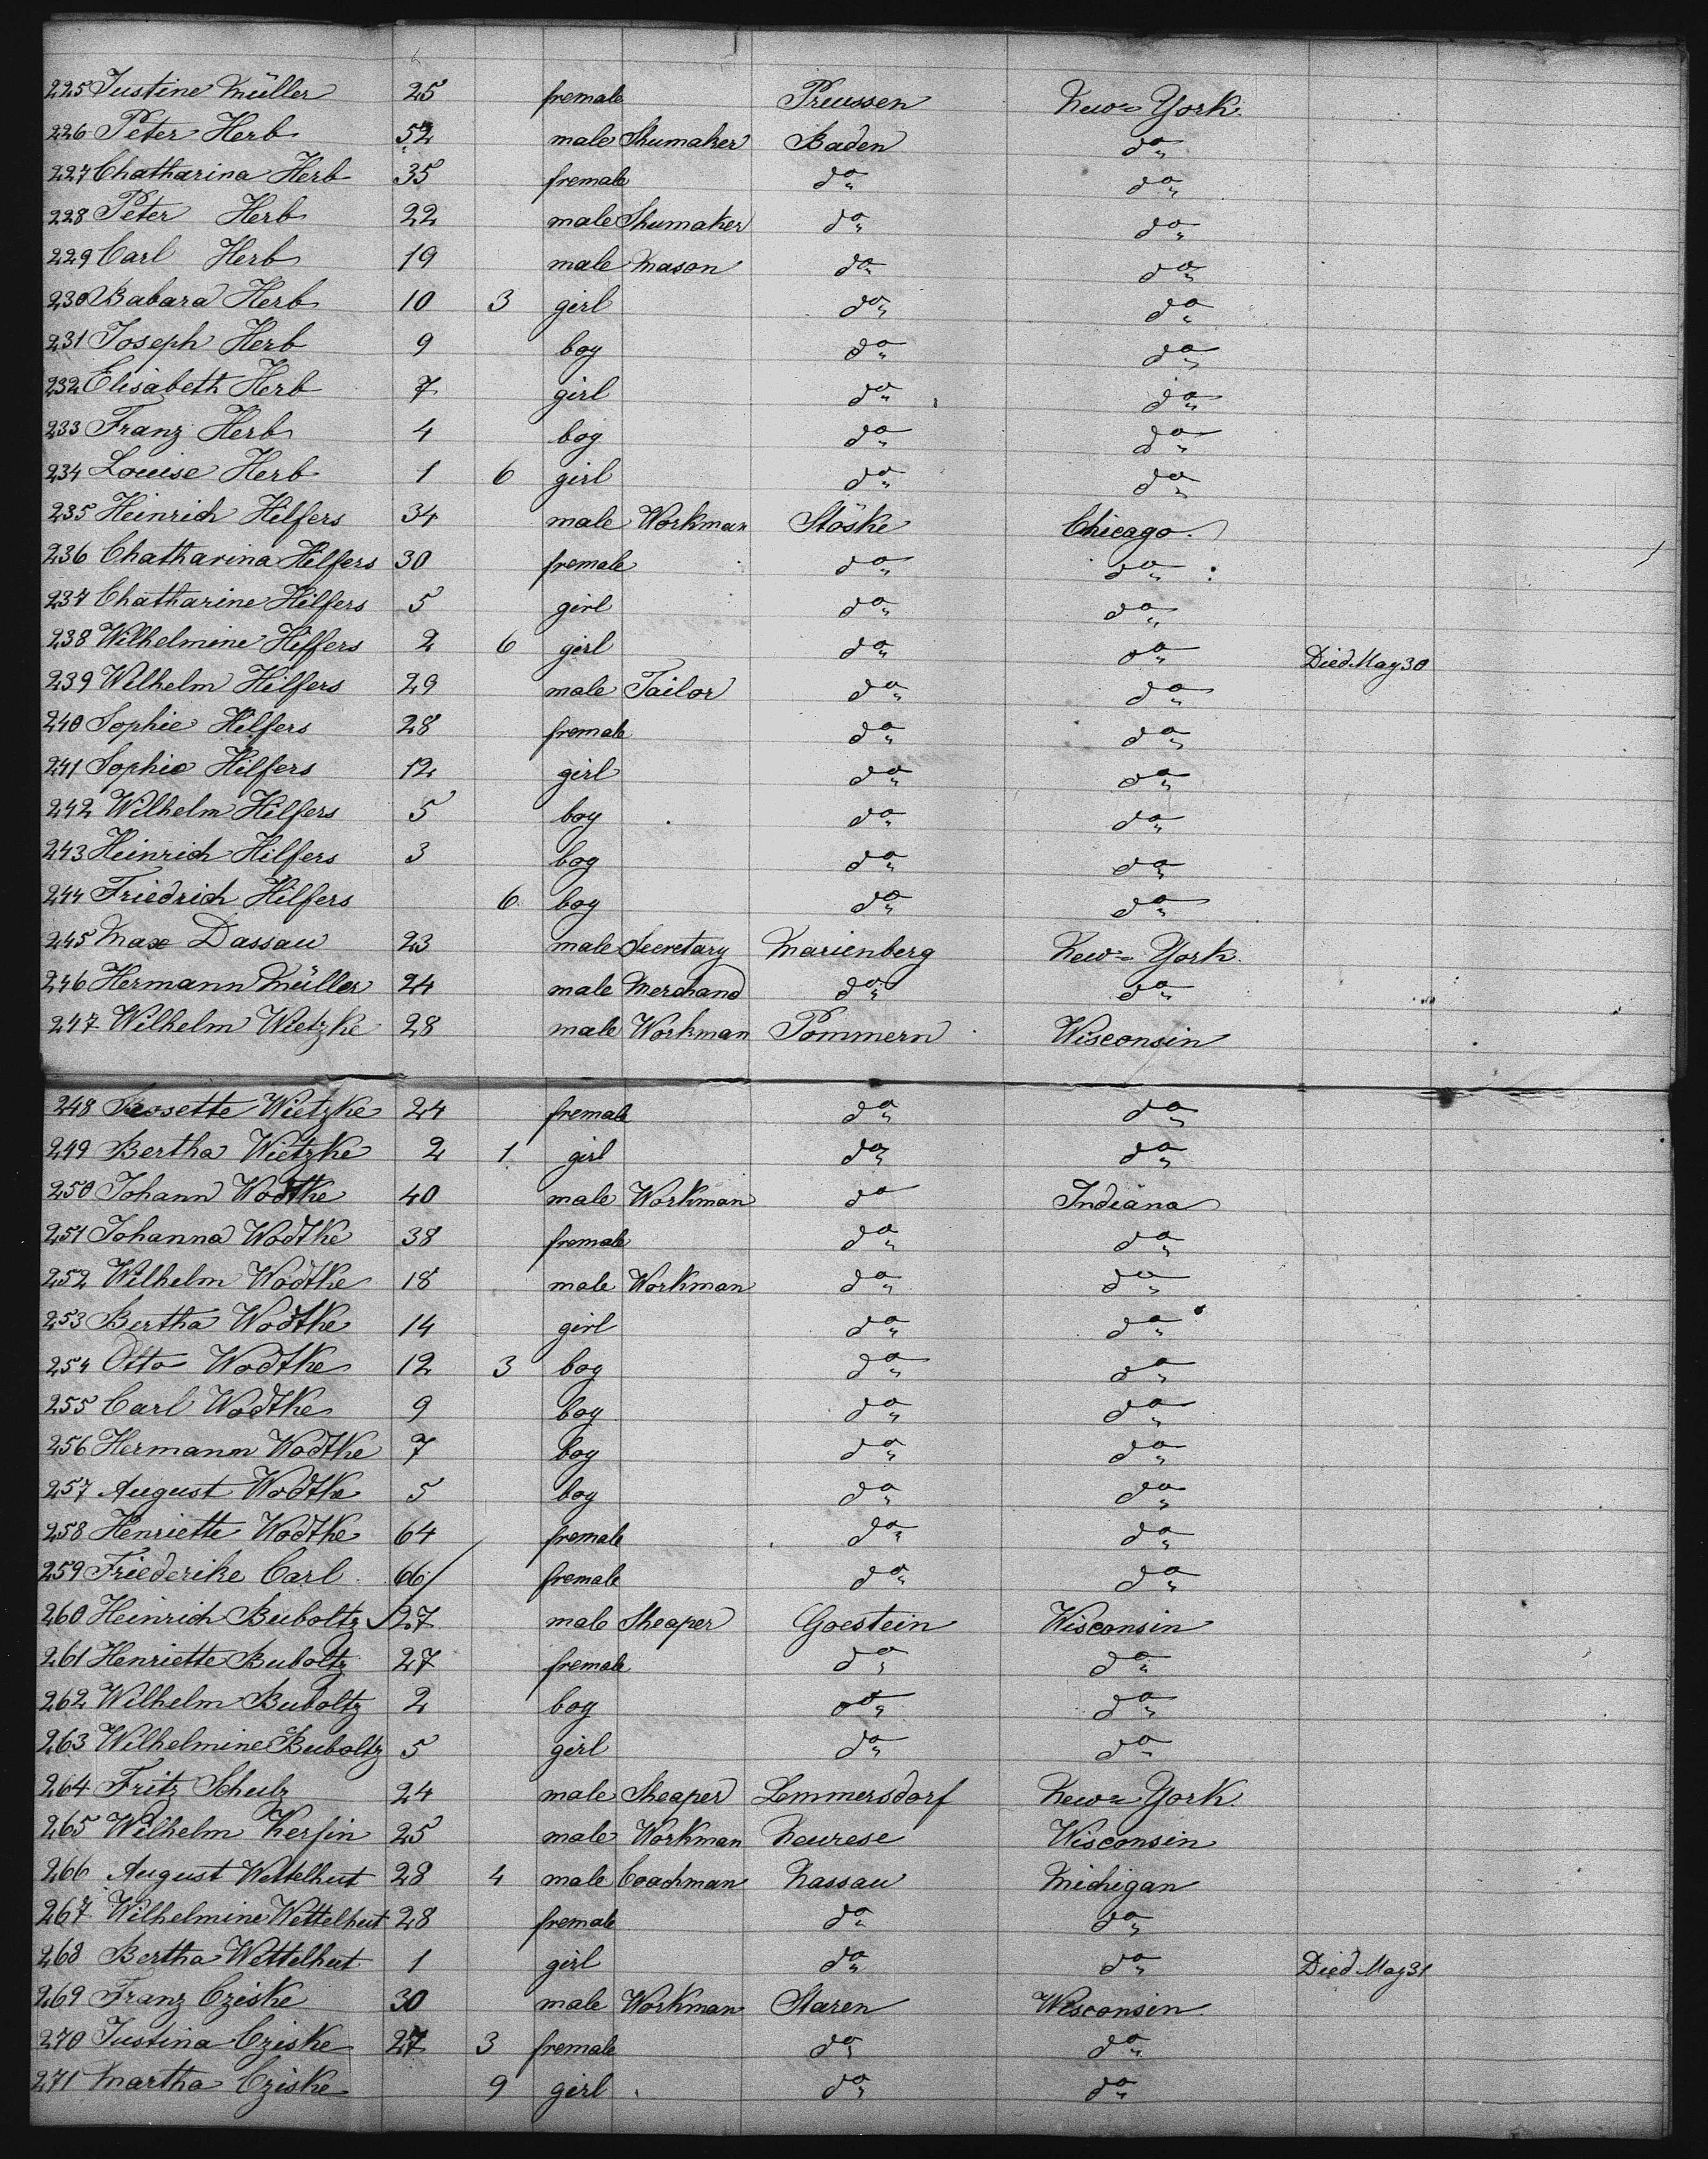 225 Justine Müller 25 fremale Preussen New-York.
226 Peter Herb 52 male Shumaker Baden do"
227 Chatharina Herb 35 fremale do" do"
228 Peter Herb 22 male Shumaker do" do"
229 Carl Herb 19 male Mason do" do"
230 Babara Herb 10 3 girl do" do"
231 Joseph Herb 9 boy do" do"
232 Elisabeth Herb 7 girl do" do"
233 Franz Herb 4 boy do" do"
234 Louise Herb 1 6 girl do" do"
235 Heinrich Hilfers 34 male Workman Stöske Chicago.
236 Chatharina Hilfers 30 fremale do" do"
237 Chatharine Hilfers 5 girl do" do"
238 Wilhelmine Hilfers 2 6 girl do" do" Died May 30
239 Wilhelm Hilfers 29 male Tailor do" do"
240 Sophie Hilfers 28 fremale do" do"
241 Sophie Hilfers 12 girl do" do"
242 Wilhelm Hilfers 5 boy do" do"
243 Heinrich Hilfers 3 boy do" do"
244 Friedrich Hilfers 6 boy do" do"
245 Max Dassau 23 male Secretary Marienberg New-York.
246 Hermann Müller 24 male Merchand do" do"
247 Wilhelm Wietzke 28 male Workman Pommern Wisconsin
248 Rosette Wietzke 24 fremale do" do"
249 Bertha Wietzke 2 1 girl do" do"
250 Johann Wodtke 40 male Workman do" Indiana
251 Johanna Wodtke 38 fremale do" do"
252 Wilhelm Wodtke 18 male Workman do" do"
253 Bertha Wodtke 14 girl do" do"
254 Otto Wodtke 12 3 boy do" do"
255 Carl Wodtke 9 boy do" do"
256 Hermann Wodtke 7 boy do" do"
257 August Wodtke 5 boy do" do"
258 Henriette Wodtke 64 fremale do" do"
259 Friederike Carl 66 fremale do" do"
260 Heinrich Buboltz 27 male Sheaper Goestein Wisconsin
261 Henriette Buboltz 27 fremale do" do"
262 Wilhelm Buboltz 2 boy do" do"
263 Wilhelmine Buboltz 5 girl do" do"
264 Fritz Schulz 24 male Sheaper Lemmersdorf New-York.
265 Wilhelm Kerfin 25 male Workman Neurese Wisconsin
266 August Wettelhut 28 4 male Coachman Nassau Michigan
267 Wilhelmine Wettelhut 28 fremale do" do"
268 Bertha Wettelhut 1 girl do" do" Died May 31
269 Franz Cziske 30 male Workman Staren Wisconsin
270 Justina Cziske 27 3 fremale do" do"
271 Martha Cziske 9 girl do" do"